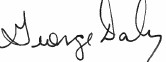 George Daly